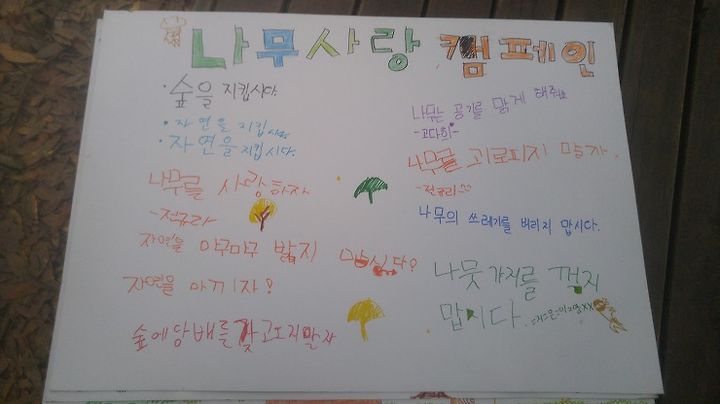 나무사랑 캠페인
·숲을 지킵시다.
·자연을 지킵시다
·자연을 지킵시다.
나무를 사랑하자
-전규리-
자연을 마구마구 밟지 맙시다?
자연을 아끼자?
숲에 담배를 갖고오지말자
나무는 공기를 맑게 해줘요
-고다희-
나무를 괴로피지 마자.
-전규리
나무의 쓰레기를 버리지 맙시다.
나뭇가지를 꺽지
맙시다.